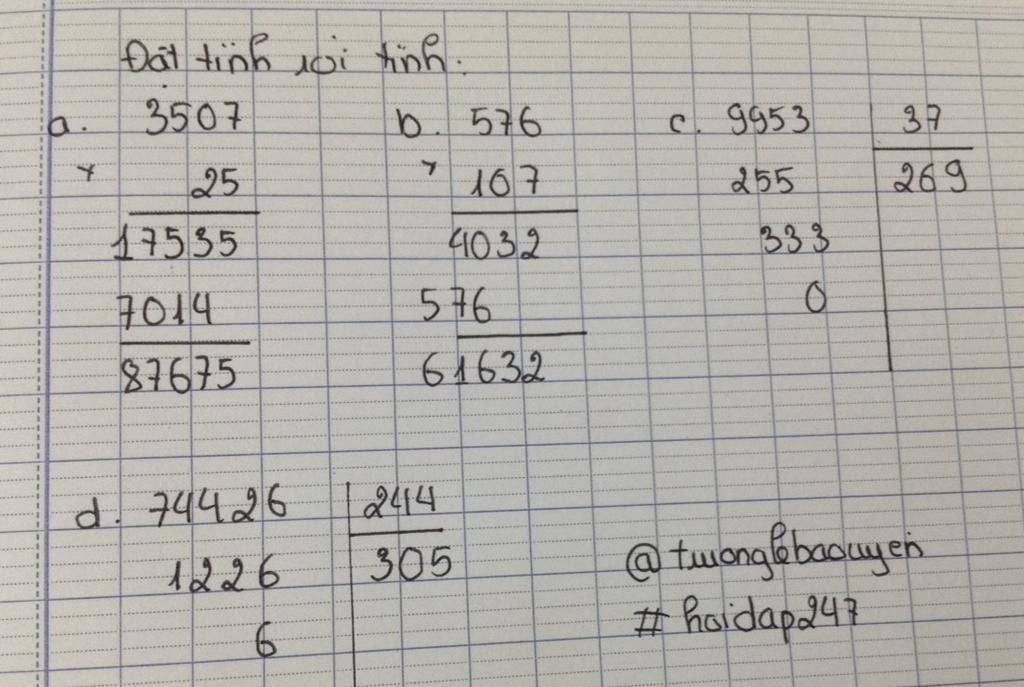 Đặt tính rồi tính.
a. 3507
× 25
17535
7014
87675
b. 576
× 107
4032
576
61632
c. 9953 37
255 269
333
0
d. 74426 244
1226 305
6
@tuonglebaouyen
# hoidap247